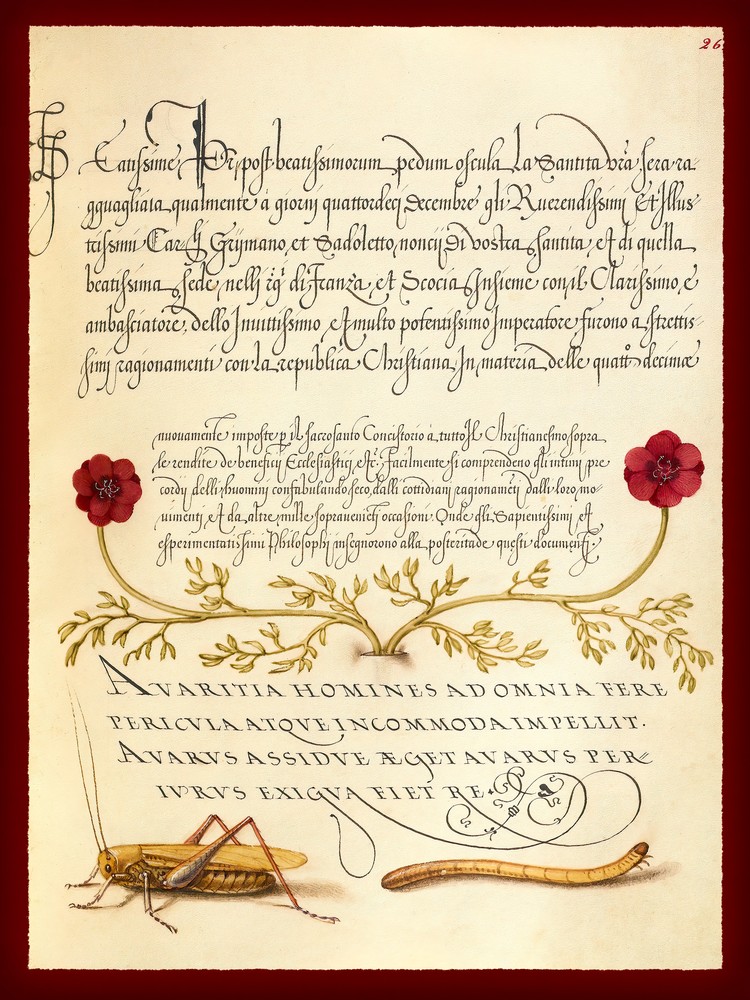 26
Eatissime Pr, post beatissimorum pedum oscula La Santita vra sera ra-
gguagliata qualmente a giorni quattordeci decembre gli Ruerendissimi Et Illus-
trissimi Car.li Grymano, et Sadoletto, noncii Di vostra santita, et di quella
beatissima sede, nelli di Franza, et Scocia Insieme con il Clarissimo, e
ambasciatore dello Inuittissmo, et multo potentissimo Imperatore furono a strettis-
simi ragionamenti con la republica Christiana, In materia delle quatt.o decimæ
nuouamente imposte p il sacrosanto Concistorio a tutto Il Christianesmo sopra
le rendite de beneficij Ecclesiastici, etc. Facilmente si comprendeno gli intimi pre
cordij delli huomini confabulando seco, dalli cottidiani ragionameti dalli loro mo-
uimenti, et da altre mille sopraueniti occasioni. Onde gli Sapientissimi, et
esperimentatissimi Philosophi insegnorono alla posteritade questi documenti.
AVARITIA HOMINES AD OMNIA FERE
PERICVLA ATQVE INCOMMODA IMPELLIT.
AVARVS ASSIDVE ÆGET AVARVS PER-
IVRVS EXIGVA FIET RE